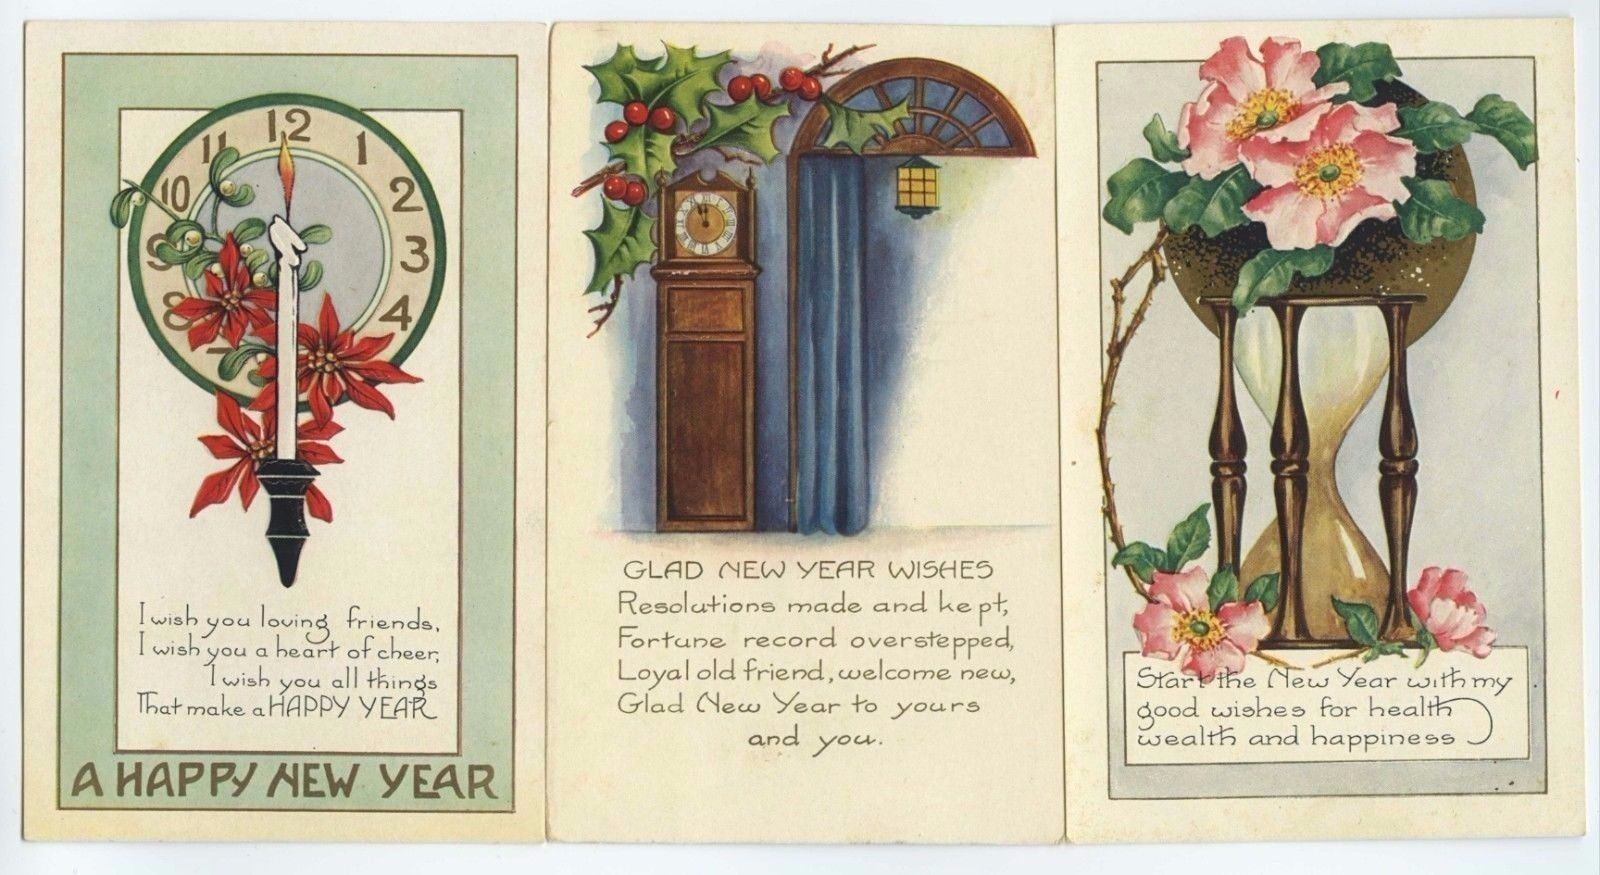 12
11
1
10
2
9
3
8
4
7
I wish you loving friends,
I wish you a heart of cheer,
I wish you all things
That make a HAPPY YEAR
A HAPPY NEW YEAR
GLAD NEW YEAR WISHES
Resolutions made and kept,
Fortune record overstepped,
Loyal old friend, welcome new,
Glad New Year to yours
and you.
Start the New Year with my
good wishes for health
wealth and happiness